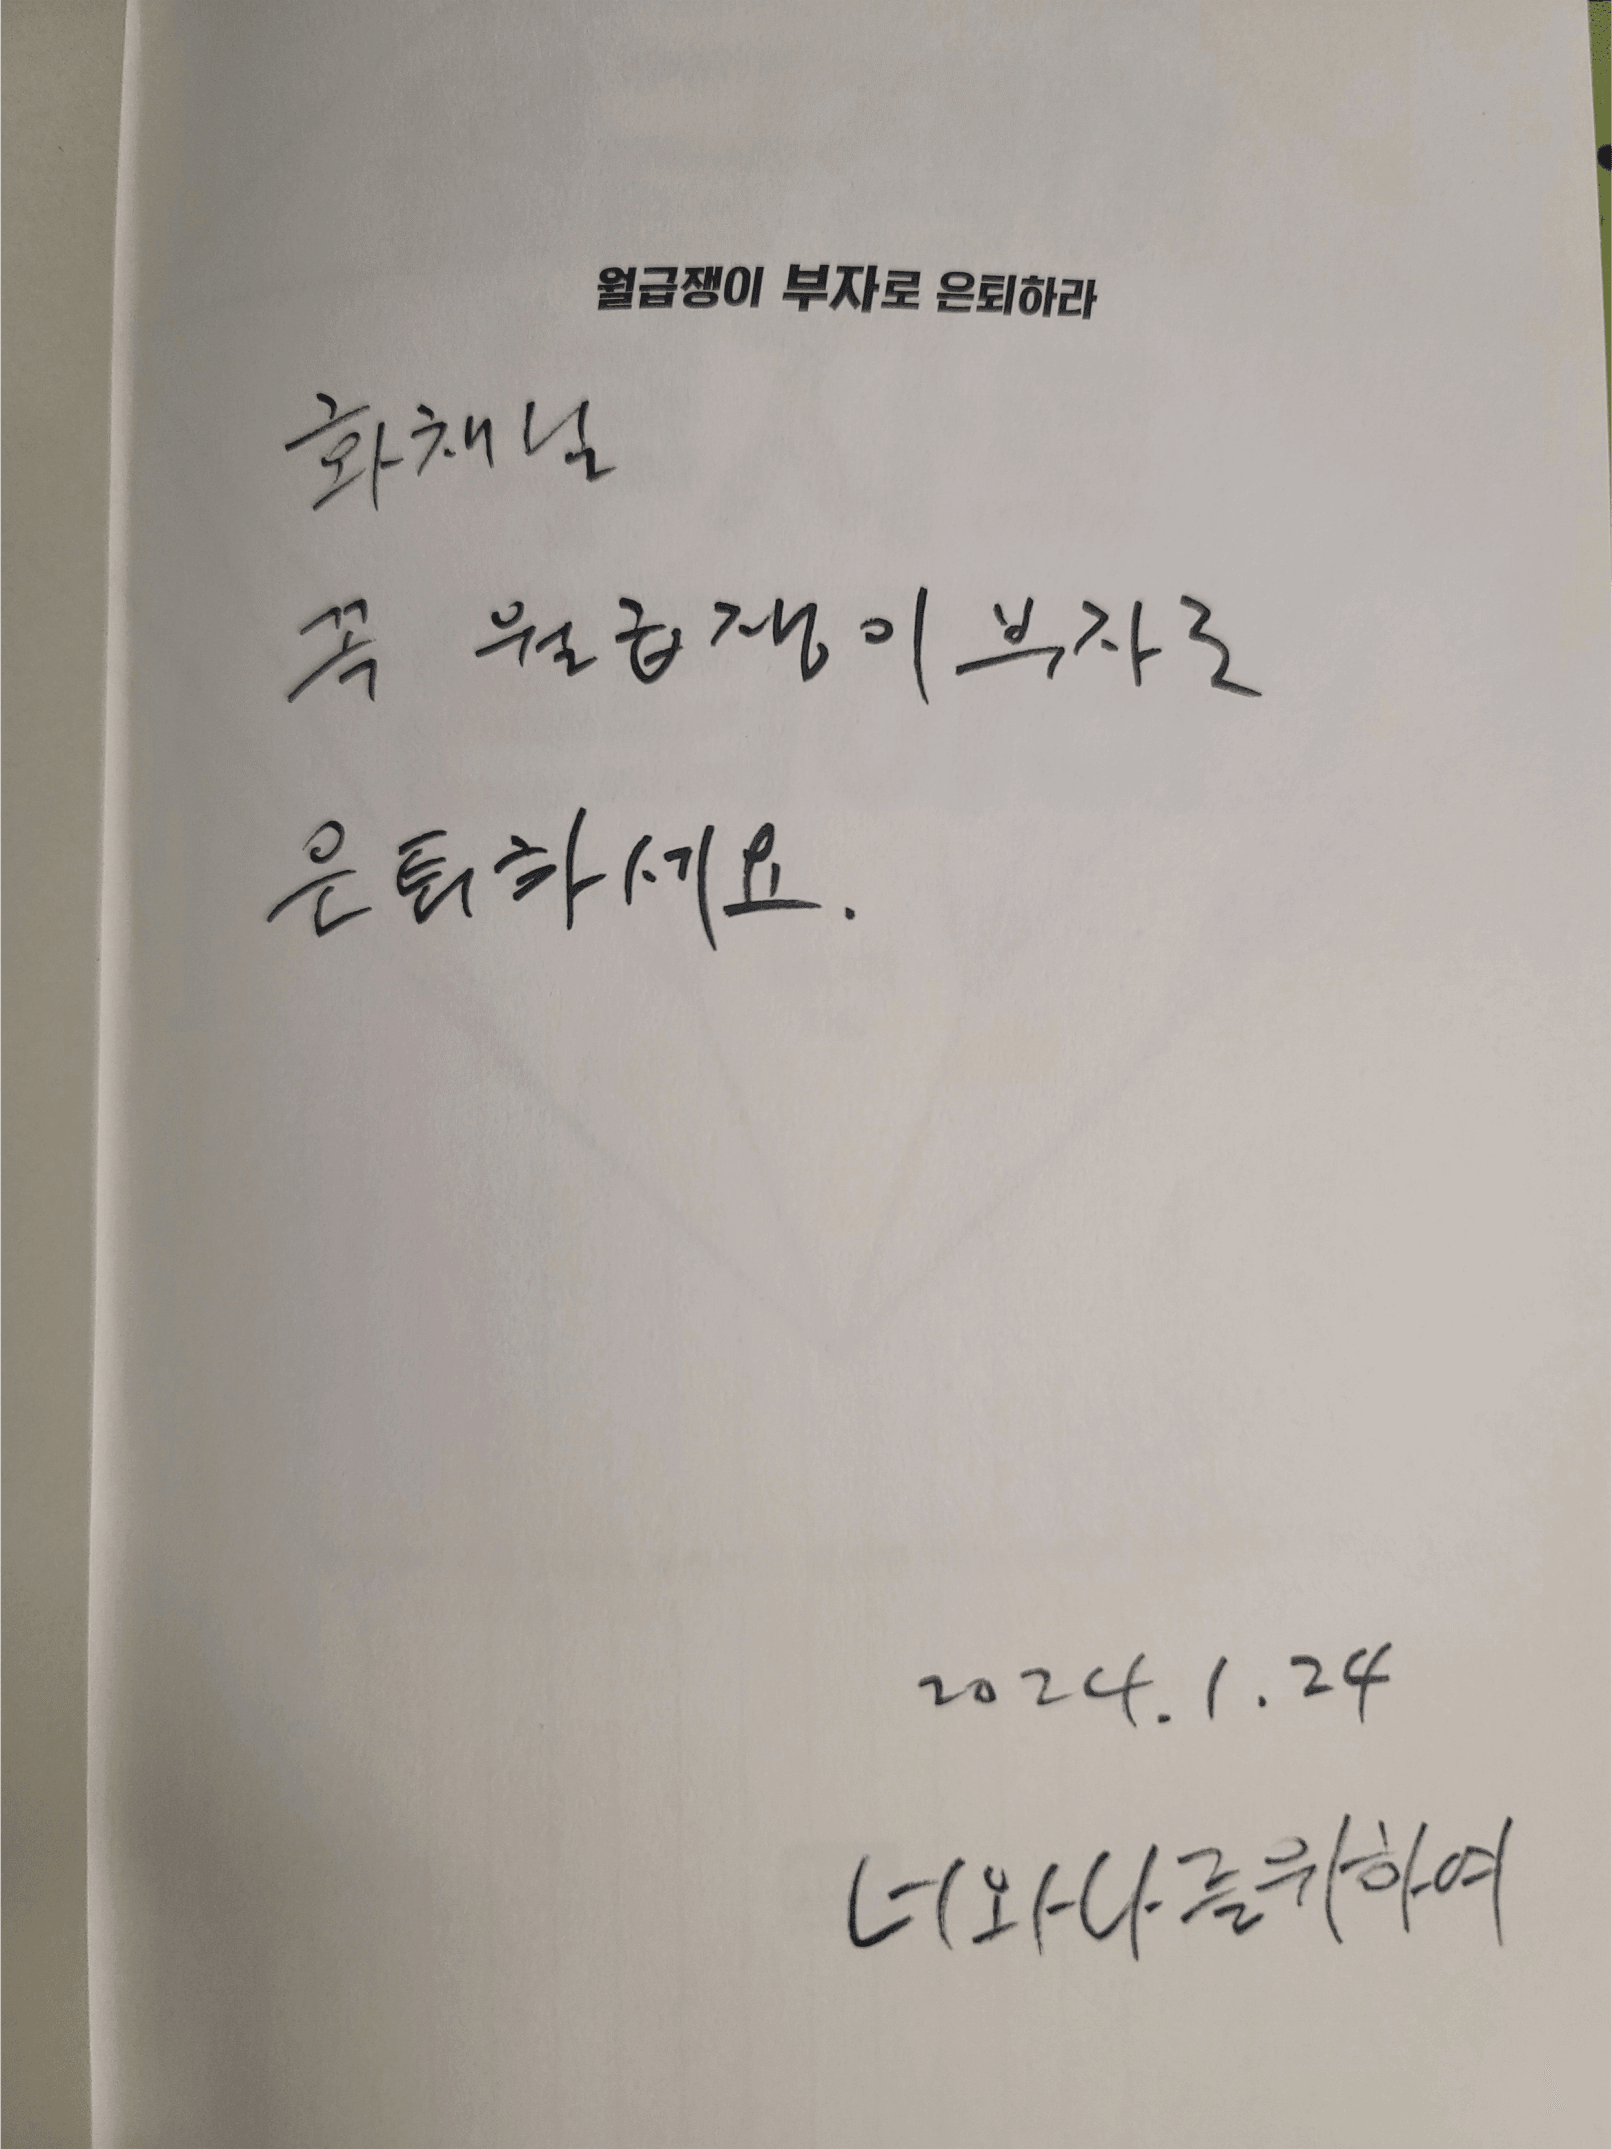 월급쟁이 부자로 은퇴하라
화채님
꼭 월급쟁이 부자로
은퇴하세요.
2024.1.24
너와나를위하여